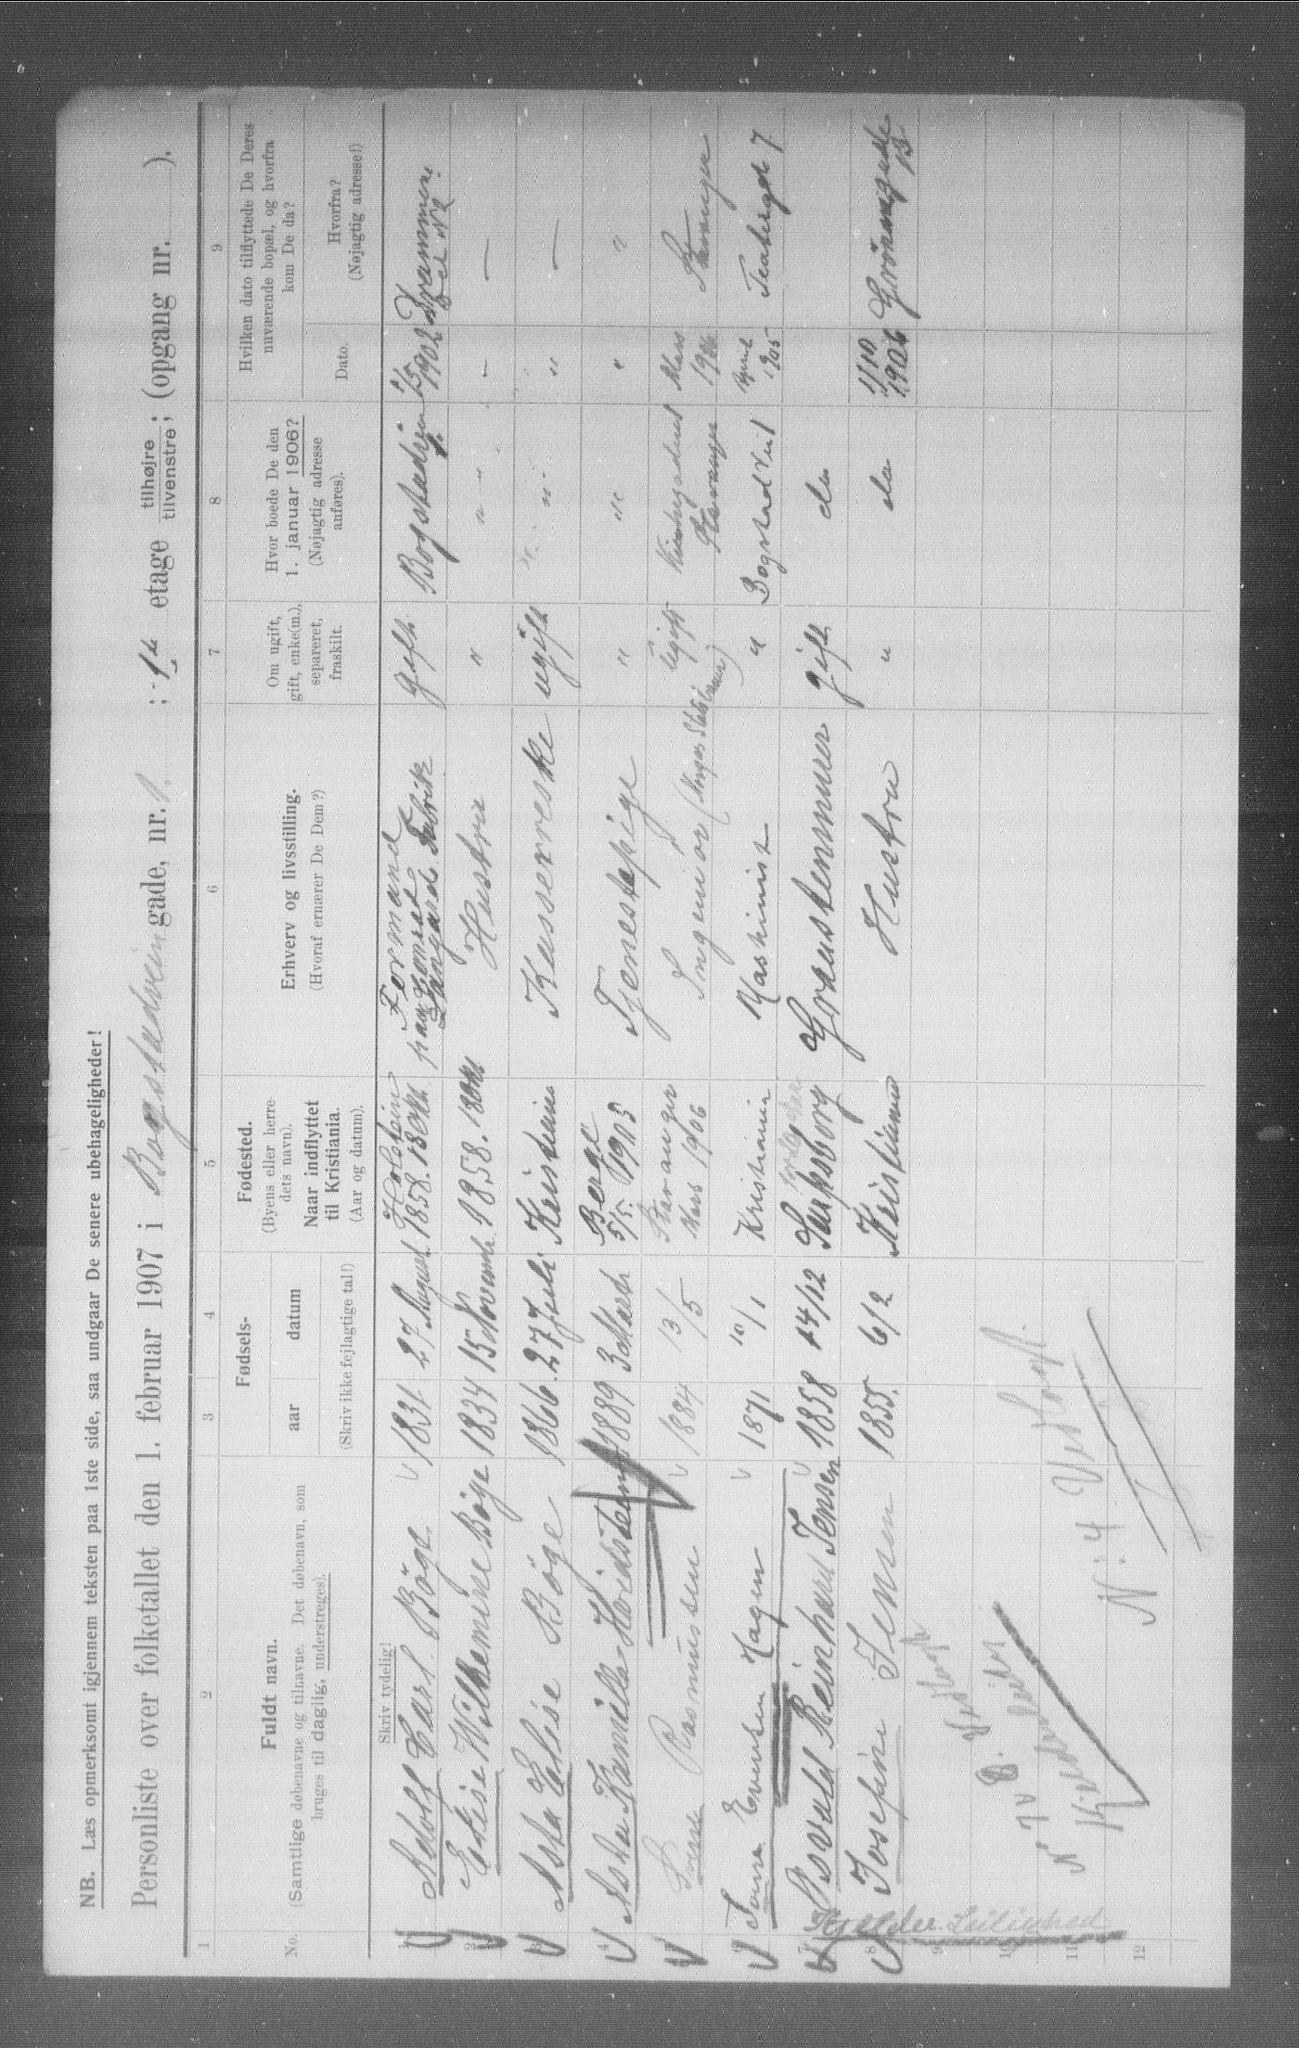 NB. Læs opmerksomt igjennem teksten paa 1ste side, saa undgaar De senere ubehageligheder!
Personliste over folketallet den 1. februar 1907 i Bogstadveien gade, nr. 1. ; 1ste etage tilhøjre tilvenstre; (opgang nr. ).
1 2 3 4 5 6 7 8 9
No.
Fuldt navn.
(Samtlige døbenavne og tilnavne. Det døbenavn, som
bruges til daglig, understreges).
Fødsels-
aar datum
(Skriv ikke fejlagtige tal!)
Fødested.
(Byens eller herre
dets navn).
Naar indflyttet
til Kristiania.
(Aar og datum).
Erhverv og livsstilling.
(Hvoraf ernærer De Dem?)
Om ugift,
gift, enke(m.),
separeret,
fraskilt.
Hvor boede De den
1. januar 1906?
(Nøjagtig adresse
anføres).
Hvilken dato tilflyttede De Deres
nuværende bopæl, og hvorfra
kom De da?
Dato.
Hvorfra?
(Nøjagtig adresse!)
Skriv tydelig!
1 Adolf Carl Böge 1831 27 August Holstein 1858. Formand Fabrik gift Bogstadveien 1 1902 Drammens
2 Elise Wilhemine Böge 1834 15 Novembr. 1858. Hustru " " " — —
3 Asta Elise Böge 1866 27 Juli Kristiania Kasserreske ugift " " " —
4 Asta Kamilla 1889 3 Marts Berge 5/5. 1905 Tjenestepige " " " "
5 Svend Rasmussen 1884 13/5 Stavanger Mars 1906 Ingeniör ugift Stavanger Mars 1906 Stavanger
6 Evensen Hagen 1871 10/1 Kristiania Maskinist " Bogstadvei 1 April 1905 Teatergt 7
7 Osvald Reinhard Jensen 1858 14/12 Sarpsborg Graastenmurer gift do
8 Josefine Jensen 1855. 6/2 Kristiania Hustru " do 1/10 1906 Grönnegade
9
10
11
12
Kjelder Leilighed
N: 4